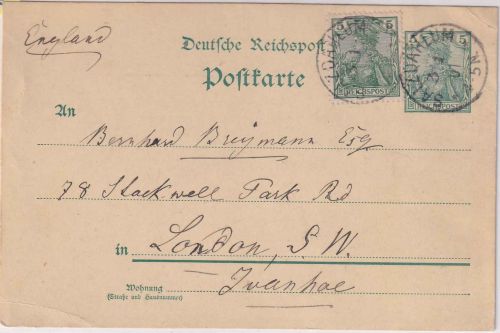 England
Deutsche Reichspost
Postkarte
5
5
REICHSPOST
REICHSPOST
SALZDAHLUM
An
Bernhard Breymann Esq
78 Stockwell Park Rd
in London, S. W.
Ivanhoe
Wohnung
(Straße und Hausnummer)